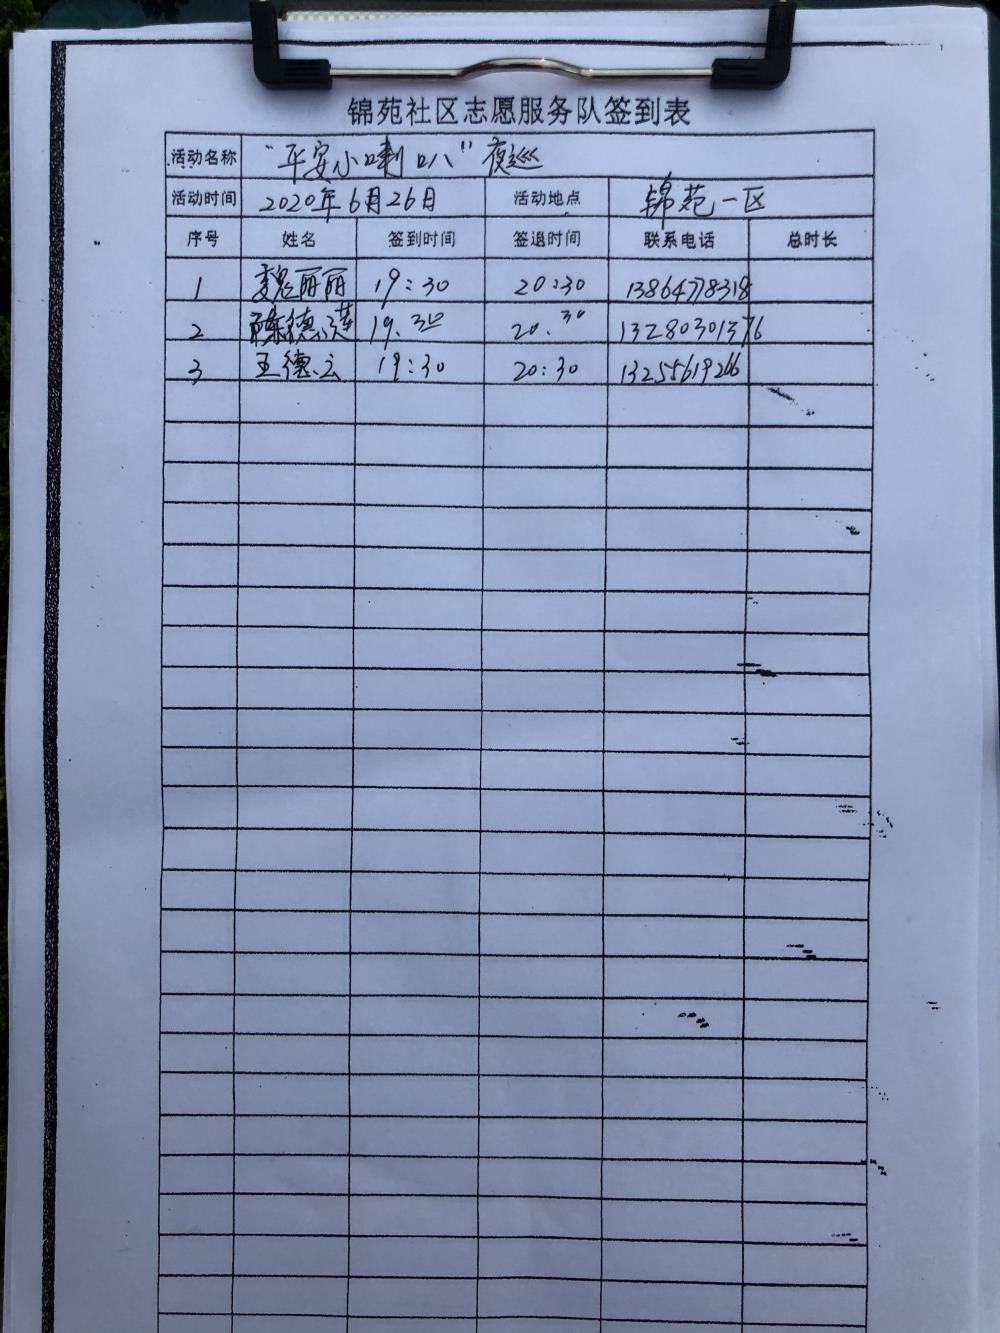 锦苑社区志愿服务队签到表
活动名称 "平安小喇叭"夜巡
活动时间 2020年6月26日 活动地点 锦苑一区
序号 姓名 签到时间 签退时间 联系电话 总时长
1 魏丽丽 19:30 20:30 13864778318
2 陈德莲 19.30 20.30 13280301376
3 王德云 19:30 20:30 13255619266